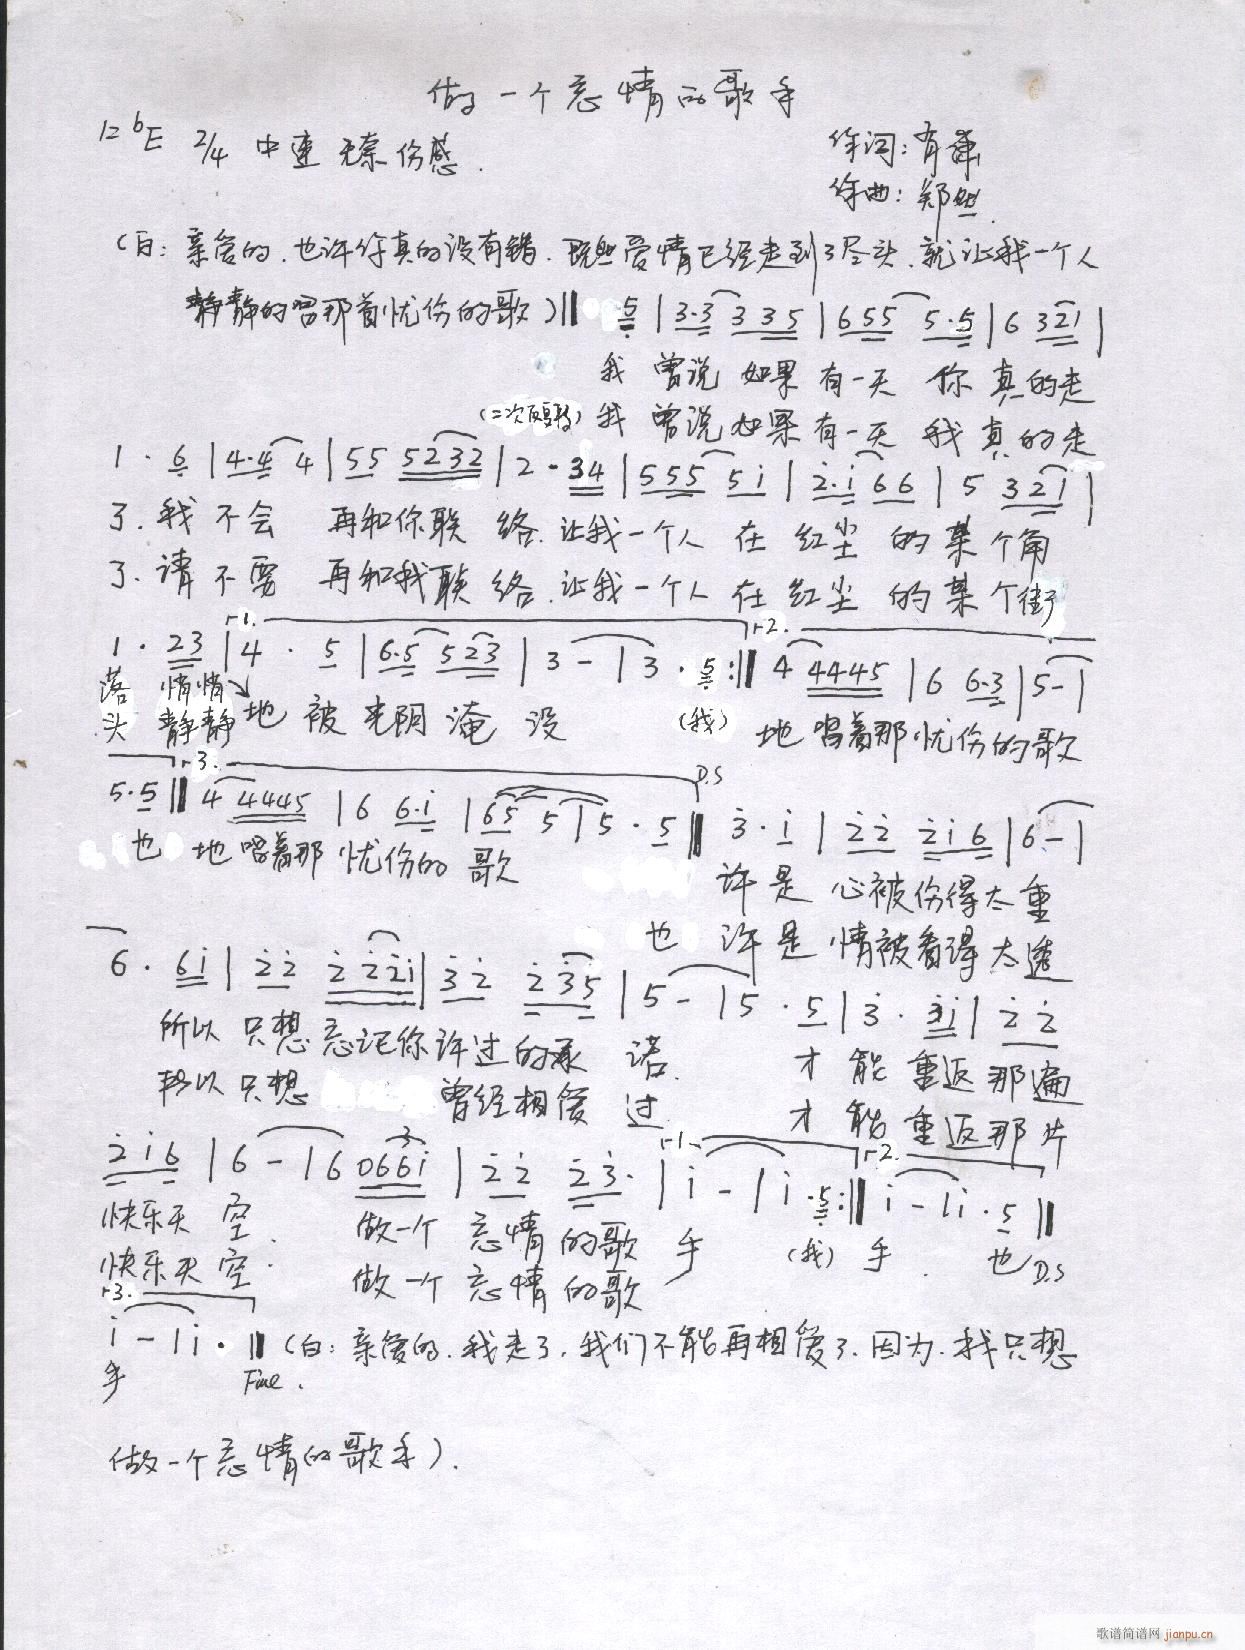 做一个忘情的歌手
1=bE 2/4 中速 无奈伤感.
作词:有
作曲:郑然
(白: 亲爱的.也许你真的没有错.既然爱情已经走到了尽头.就让我一个人
静静的唱那首忧伤的歌)‖ 5 | 3·3 3 3 5 | 6 5 5 5·5 | 6 3 2 1 |
我 曾说 如果 有一天 你 真的走
(二次反复转) 我 曾说 如果 有一天 我 真的走
1 · 6 | 4·4 4 | 5 5 5 2 3 2 | 2 · 3 4 | 5 5 5 5 i | 2·i 6 6 | 5 3 2 1 |
了.我 不会 再和你联 络.让我一个人 在 红尘 的某个角
了.请 不要 再和我联 络.让我一个人 在 红尘 的某个街
1 · 2 3 | 4 · 5 | 6·5 5 2 3 | 3 - | 3 · 5 :‖ 4 4 4 4 5 | 6 6·3 | 5 - |
r1. r2.
落 悄悄 地 被 光阴 淹 没 (我) 地 唱着那 忧伤的歌
头 静静
5·5 ‖ 4 4 4 4 5 | 6 6·i | 6 5 5 | 5 · 5 ‖ 3 · i | 2 2 2 i 6 | 6 - |
r3. D.S
也 地 唱着那 忧伤的 歌 许是 心被伤得太重
也 许是 情被看得太透
6 · 6 i | 2 2 2 2 2 i | 3 2 2 3 5 | 5 - | 5 · 5 | 3 · 3 i | 2 2
所以 只想 忘记你许过的承 诺. 才 能 重返 那遍
所以 只想 曾经相爱 过 才 能 重返 那片
2 i 6 | 6 - | 6 0 6 6 i | 2 2 2 3· | i - | i · 5 :‖ i - | i · 5 ‖
3 r1. r2.
快乐天 空. 做一个 忘情 的歌 手 (我) 手. 也 D.S
快乐天 空. 做一个 忘情 的歌
r3.
i - | i · ‖ (白: 亲爱的.我走了.我们不能再相爱了.因为.我只想
手 Fine.
做一个忘情的歌手).
歌谱简谱网 jianpu.cn